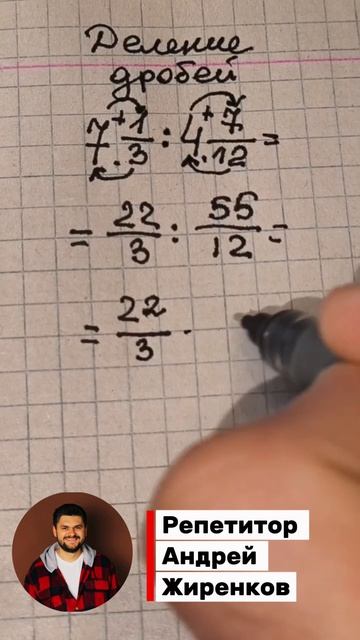 Деление
дробей
7 + 1/3 : 4 + 7/12 =
= 22/3 : 55/12 =
= 22/3 ·
Репетитор
Андрей
Жиренков